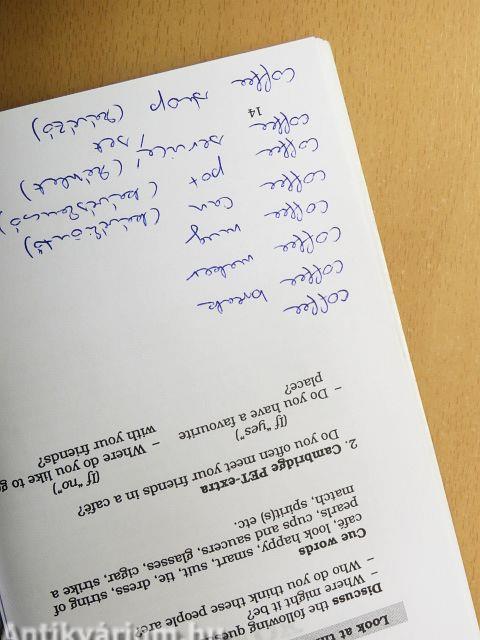 Look at th
Discuss the following quest
– Where might it be?
– Who do you think these people are?
Cue words
café, look happy, smart, suit, tie, dress, string of
pearls, cups and saucers, glasses, cigar, strike a
match, spirit(s) etc.
2. Cambridge PET-extra
Do you often meet your friends in a café?
(If "yes")
– Do you have a favourite
place?
(If "no")
– Where do you like to go
with your friends?
coffee break
coffee maker
coffee mug
coffee can
coffee pot
coffee service/ set
coffee
coffee shop (kávézó)
14
Antikvárium.hu